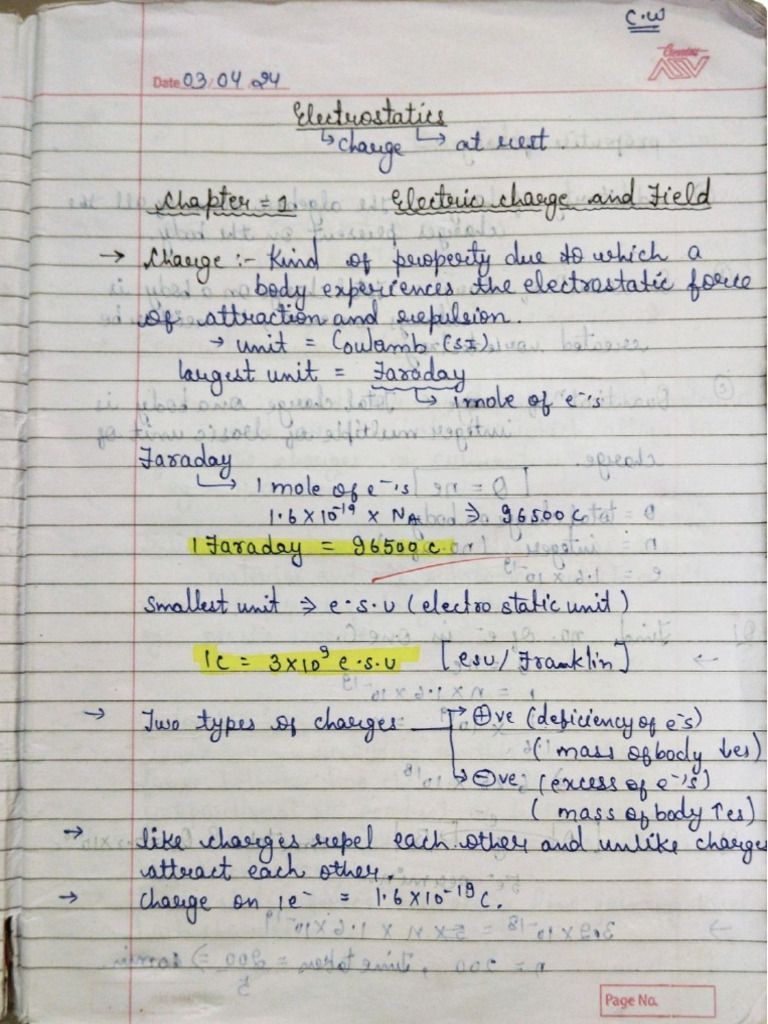 C.W
Classmate
Date 03/04/24
Electrostatics
↳ charge ↳ at rest
Chapter = 1 Electric charge and Field
→ Charge :- Kind of property due to which a
body experiences the electrostatic force
of attraction and repulsion.
→ unit = Coulamb (SI)
largest unit = Faraday
↳ 1 mole of e⁻'s
Faraday
↳ 1 mole of e⁻'s
1.6 × 10⁻¹⁹ × NA ⇒ 96500 C
1 Faraday = 96500 C.
Smallest unit ⇒ e.s.u (electro static unit)
1C = 3×10⁹ e.s.u [esu/Franklin]
→ Two types of charges → ⊕ve (deficiency of e⁻s)
(mass of body ↓es)
→ ⊖ve: (excess of e⁻'s)
(mass of body ↑es)
→ like charges repel each other and unlike charges
attract each other.
→ Charge on 1e⁻ = 1.6×10⁻¹⁹ C.
Page No.